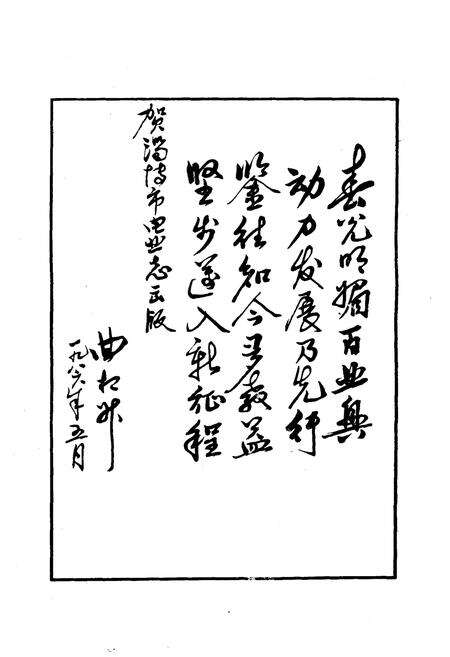 春光明媚百业兴
动力发展乃先行
鉴往知今寻教益
坚步迈入新征程
贺淄博市电业志出版
曲
一九八六年五月